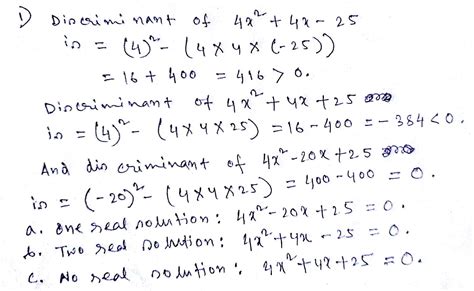 1) Discriminant of 4x² + 4x - 25
is = (4)² - (4 x 4 x (-25))
= 16 + 400 = 416 > 0.
Discriminant of 4x² + 4x + 25
is = (4)² - (4 x 4 x 25) = 16 - 400 = - 384 < 0.
And discriminant of 4x² - 20x + 25
is = (-20)² - (4 x 4 x 25) = 400 - 400 = 0.
a. One real solution : 4x² - 20x + 25 = 0.
b. Two real solution : 4x² + 4x - 25 = 0.
c. No real solution : 4x² + 4x + 25 = 0.